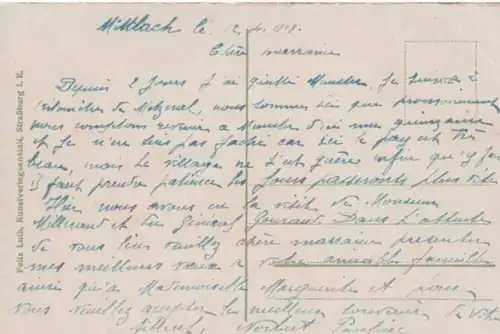 Mittlach le 12. 4. 1919.
Chère marraine
Depuis 2 jours j'ai quitté Munster, je suis à
kilomètres de Metzeral, nous sommes ici que provisoirement
nous comptons revenir à Munster d'ici une quinzaine
et je n'en serai pas fâché car ici le pays est très
beau, mais le village ne l'est guère enfin
il faut prendre patience les jours passeront plus vite
Hier nous avons eu la visite de Monsieur
Millerand et du Général Gouraud. Dans l'attente
de vous lire veuillez chère marraine présenter
mes meilleurs vœux à votre aimable famille
ainsi qu'à Mademoiselle Marguerite et vous
vous veuillez accepter les meilleurs souvenirs de votre
filleul, Norbert
Felix Luib, Kunstverlagsanstalt, Straßburg i. E.